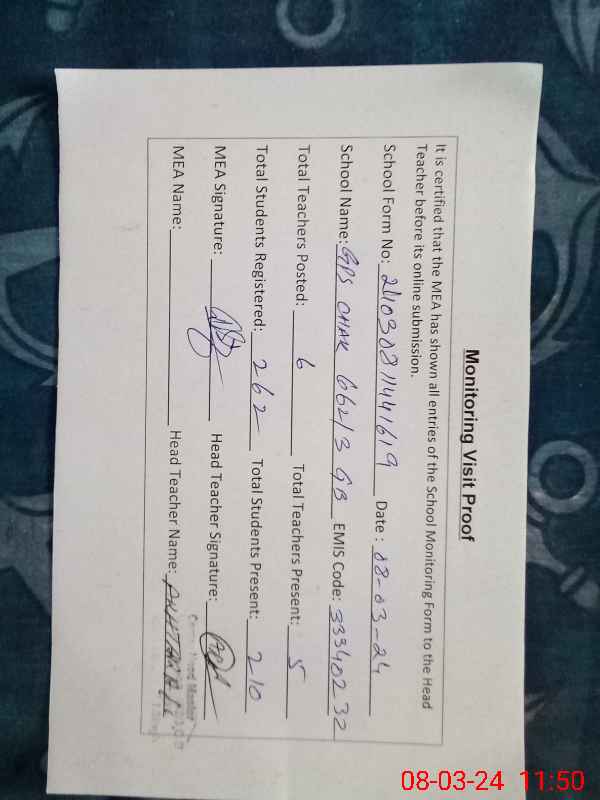 Monitoring Visit Proof
It is certified that the MEA has shown all entries of the School Monitoring Form to the Head
Teacher before its online submission.
School Form No: 24030811441619 Date : 08-03-24
School Name: GPS CHAK 662/3 GB EMIS Code: 33340232
Total Teachers Posted: 6 Total Teachers Present: 5
Total Students Registered: 262 Total Students Present: 210
MEA Signature: Head Teacher Signature:
MEA Name: Head Teacher Name:
Head Master
08-03-24 11:50